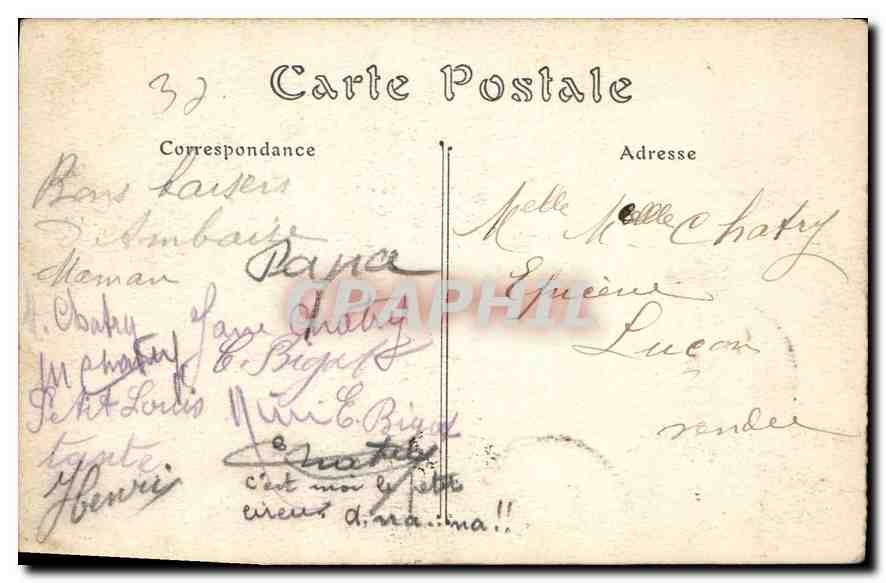 37
Carte Postale
Correspondance
Adresse
Bons baisers
D'Amboise
Maman Papa
Chatry Jane Chatry
M Chatry E. Bigot
Petit Louis Mimi E. Bigot
tante
Henri
Chatry
c'est moi le petit
cireur
Melle Chatry
Epicerie
Luçon
vendée
CPAPHIL